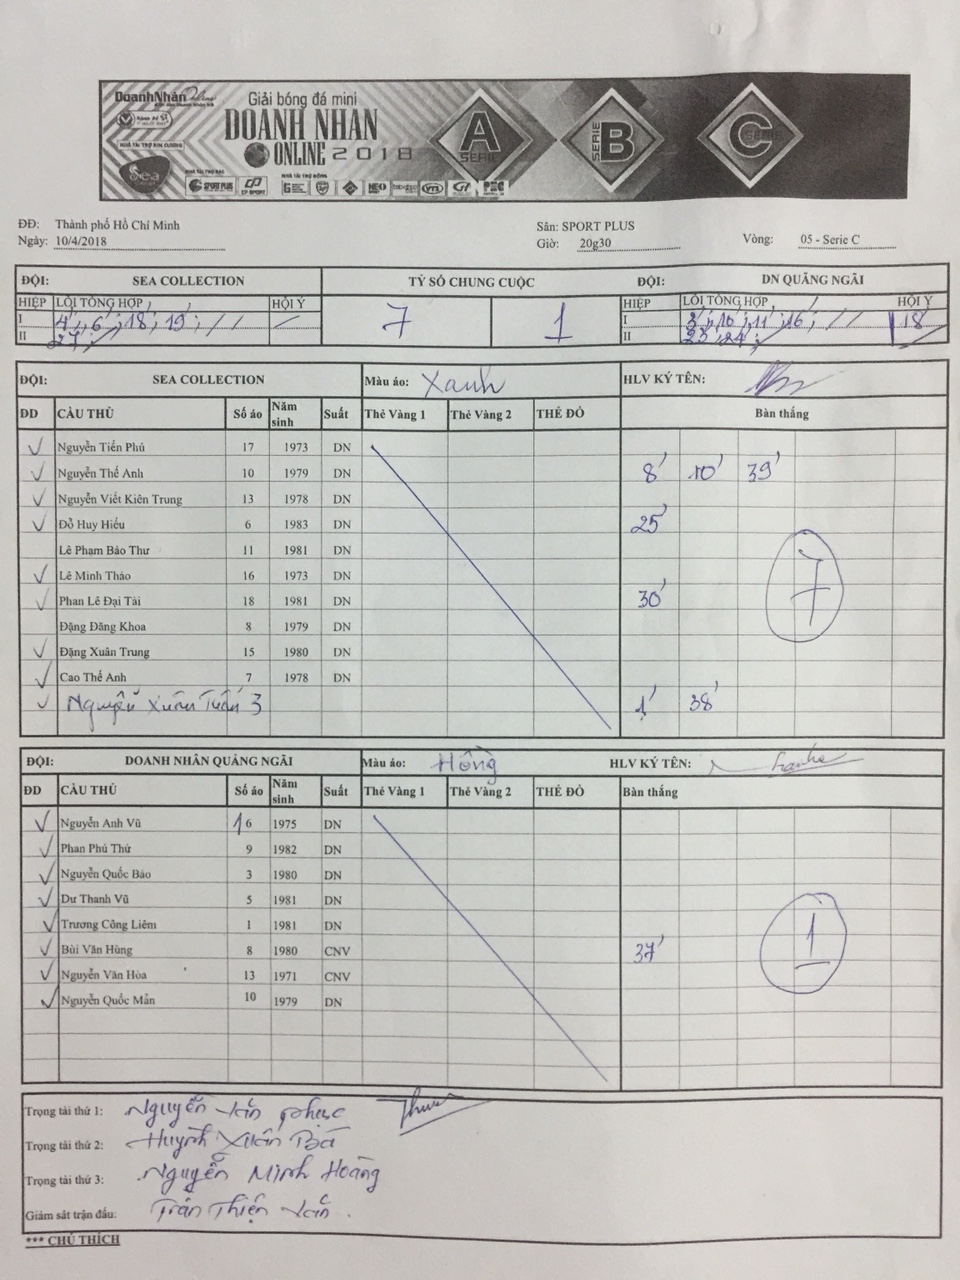 DoanhNhân Online
NHÀ TÀI TRỢ KIM CƯƠNG
Sea
Giải bóng đá mini
DOANH NHÂN
ONLINE 2018
NHÀ TÀI TRỢ BẠC
NHÀ TÀI TRỢ ĐỒNG
SPORT PLUS
CP SPORT
NEO
VTS
A
SERIE
SERIE
B
SERIE
C
ĐĐ: Thành phố Hồ Chí Minh
Sân: SPORT PLUS
Ngày: 10/4/2018
Giờ: 20g30
Vòng: 05 - Serie C
ĐỘI: SEA COLLECTION TỶ SỐ CHUNG CUỘC ĐỘI: DN QUÃNG NGÃI
HIỆP LỖI TỔNG HỢP HỘI Ý 7 1 HIỆP LỖI TỔNG HỢP HỘI Ý
I 4', 6', 18', 19' I 3', 10', 11', 16' 18'
II 27' II 23', 24'
ĐỘI: SEA COLLECTION Màu áo: Xanh HLV KÝ TÊN:
DD CẦU THỦ Số áo Năm sinh Suất Thẻ Vàng 1 Thẻ Vàng 2 THẺ ĐỎ Bàn thắng
Nguyễn Tiến Phú 17 1973 DN
Nguyễn Thế Anh 10 1979 DN 8' 10' 39'
Nguyễn Viết Kiên Trung 13 1978 DN
Đỗ Huy Hiếu 6 1983 DN 25'
Lê Phạm Bảo Thư 11 1981 DN
Lê Minh Thảo 16 1973 DN
7
Phan Lê Đại Tài 18 1981 DN 30'
Đặng Đăng Khoa 8 1979 DN
Đặng Xuân Trung 15 1980 DN
Cao Thế Anh 7 1978 DN
Nguyễn Xuân Tuấn 3 1' 38'
ĐỘI: DOANH NHÂN QUẢNG NGÃI Màu áo: Hồng HLV KÝ TÊN:
DD CẦU THỦ Số áo Năm sinh Suất Thẻ Vàng 1 Thẻ Vàng 2 THẺ ĐỎ Bàn thắng
Nguyễn Anh Vũ 16 1975 DN
Phan Phú Thứ 9 1982 DN
Nguyễn Quốc Bảo 3 1980 DN
Dư Thanh Vũ 5 1981 DN
Trương Công Liêm 1 1981 DN
Bùi Văn Hùng 8 1980 CNV 37' 1
Nguyễn Văn Hòa 13 1971 CNV
Nguyễn Quốc Mẫn 10 1979 DN
Trọng tài thứ 1: Nguyễn Văn Phục
Trọng tài thứ 2: Huỳnh Xuân Bá
Trọng tài thứ 3: Nguyễn Minh Hoàng
Giám sát trận đấu: Trần Thiện Văn.
*** CHÚ THÍCH